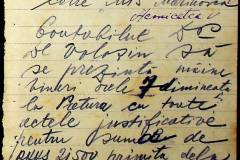 Hernicatea
Contabilul
De Voloșin să
se prezinte mâine
vineri orele 7 dimineața
la Pretura cu toate
actele justificative
pentru suma de
21.500 primita dela